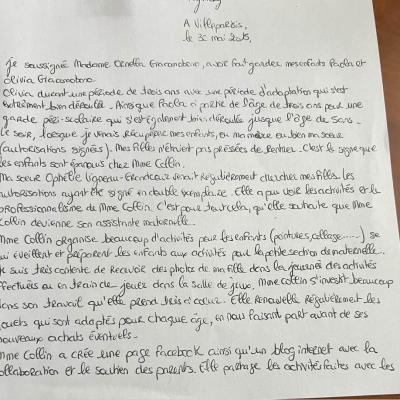 A Villeparisis,
le 30 mai 2015,
Je soussignée Madame Ornella Giacomoboro, avoir fait garder mes enfants Paola et
Olivia Giacomoboro.
Olivia durant une période de trois ans avec une période d'adaptation qui s'est
extrêmement bien déroulée. Ainsi que Paola à partir de l'âge de trois ans pour une
garde péri-scolaire qui s'est également bien déroulée jusque l'âge de 5 ans.
Le soir, lorsque je venais récupérer mes enfants, ou ma mère ou bien ma soeur
(autorisations signées). Mes filles n'étaient pas pressées de rentrer. C'est le signe que
les enfants sont épanouis chez Mme Collin.
Ma soeur Ophélie venait régulièrement chercher mes filles. Les
autorisations ayant été signé en double exemplaire. Elle a pu voir les activités et le
professionnalisme de Mme Collin. C'est pour tout cela, qu'elle souhaite que Mme
Collin devienne son assistante maternelle.
Mme Collin organise beaucoup d'activités pour les enfants (peintures, collage......) se
qui éveillent et préparent les enfants aux activités pour la petite section de maternelle.
Je suis très contente de recevoir des photos de ma fille dans la journée des activités
effectuées ou en train de jouer dans la salle de jeux. Mme Collin s'investit beaucoup
dans son travail qu'elle prend très à coeur. Elle renouvelle régulièrement les
jouets qui sont adaptés pour chaque âge, en nous faisant part avant de ses
nouveaux achats éventuels.
Mme Collin a crée une page Facebook ainsi qu'un blog internet avec la
collaboration et le soutien des parents. Elle partage les activités faites avec les